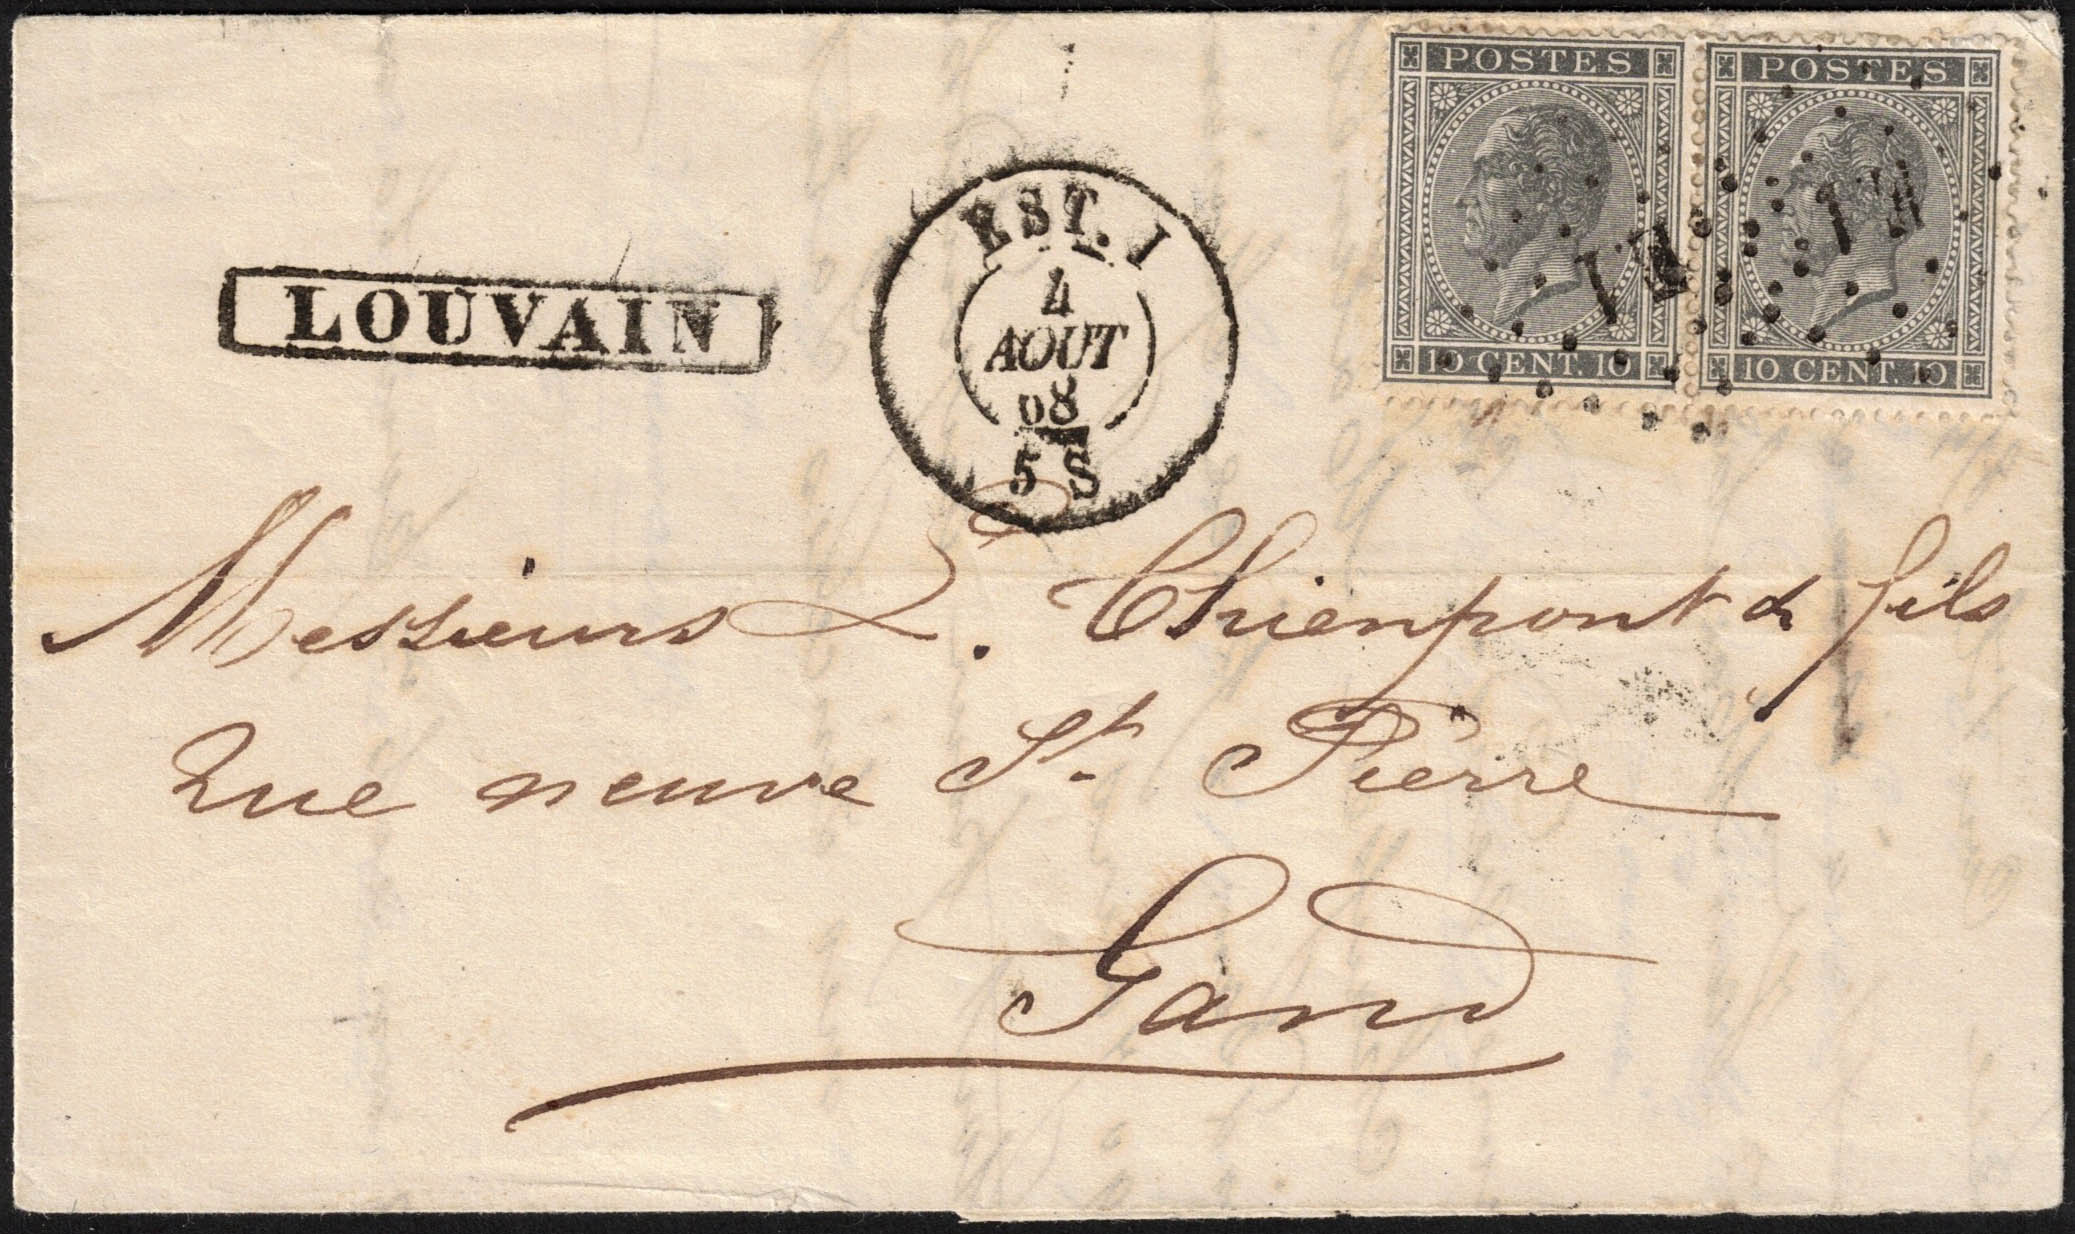 POSTES POSTES
10 CENT. 10 10 CENT. 10
LOUVAIN
EST. I
4
AOUT
68
5 S
Messieurs L. Thienpont & fils
Rue neuve St. Pierre
Gand